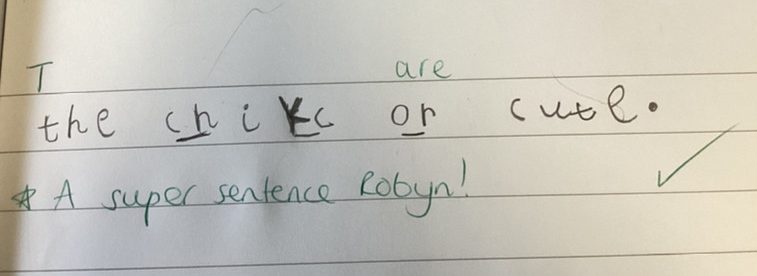 T are
the chikc or cute.
* A super sentence Robyn!